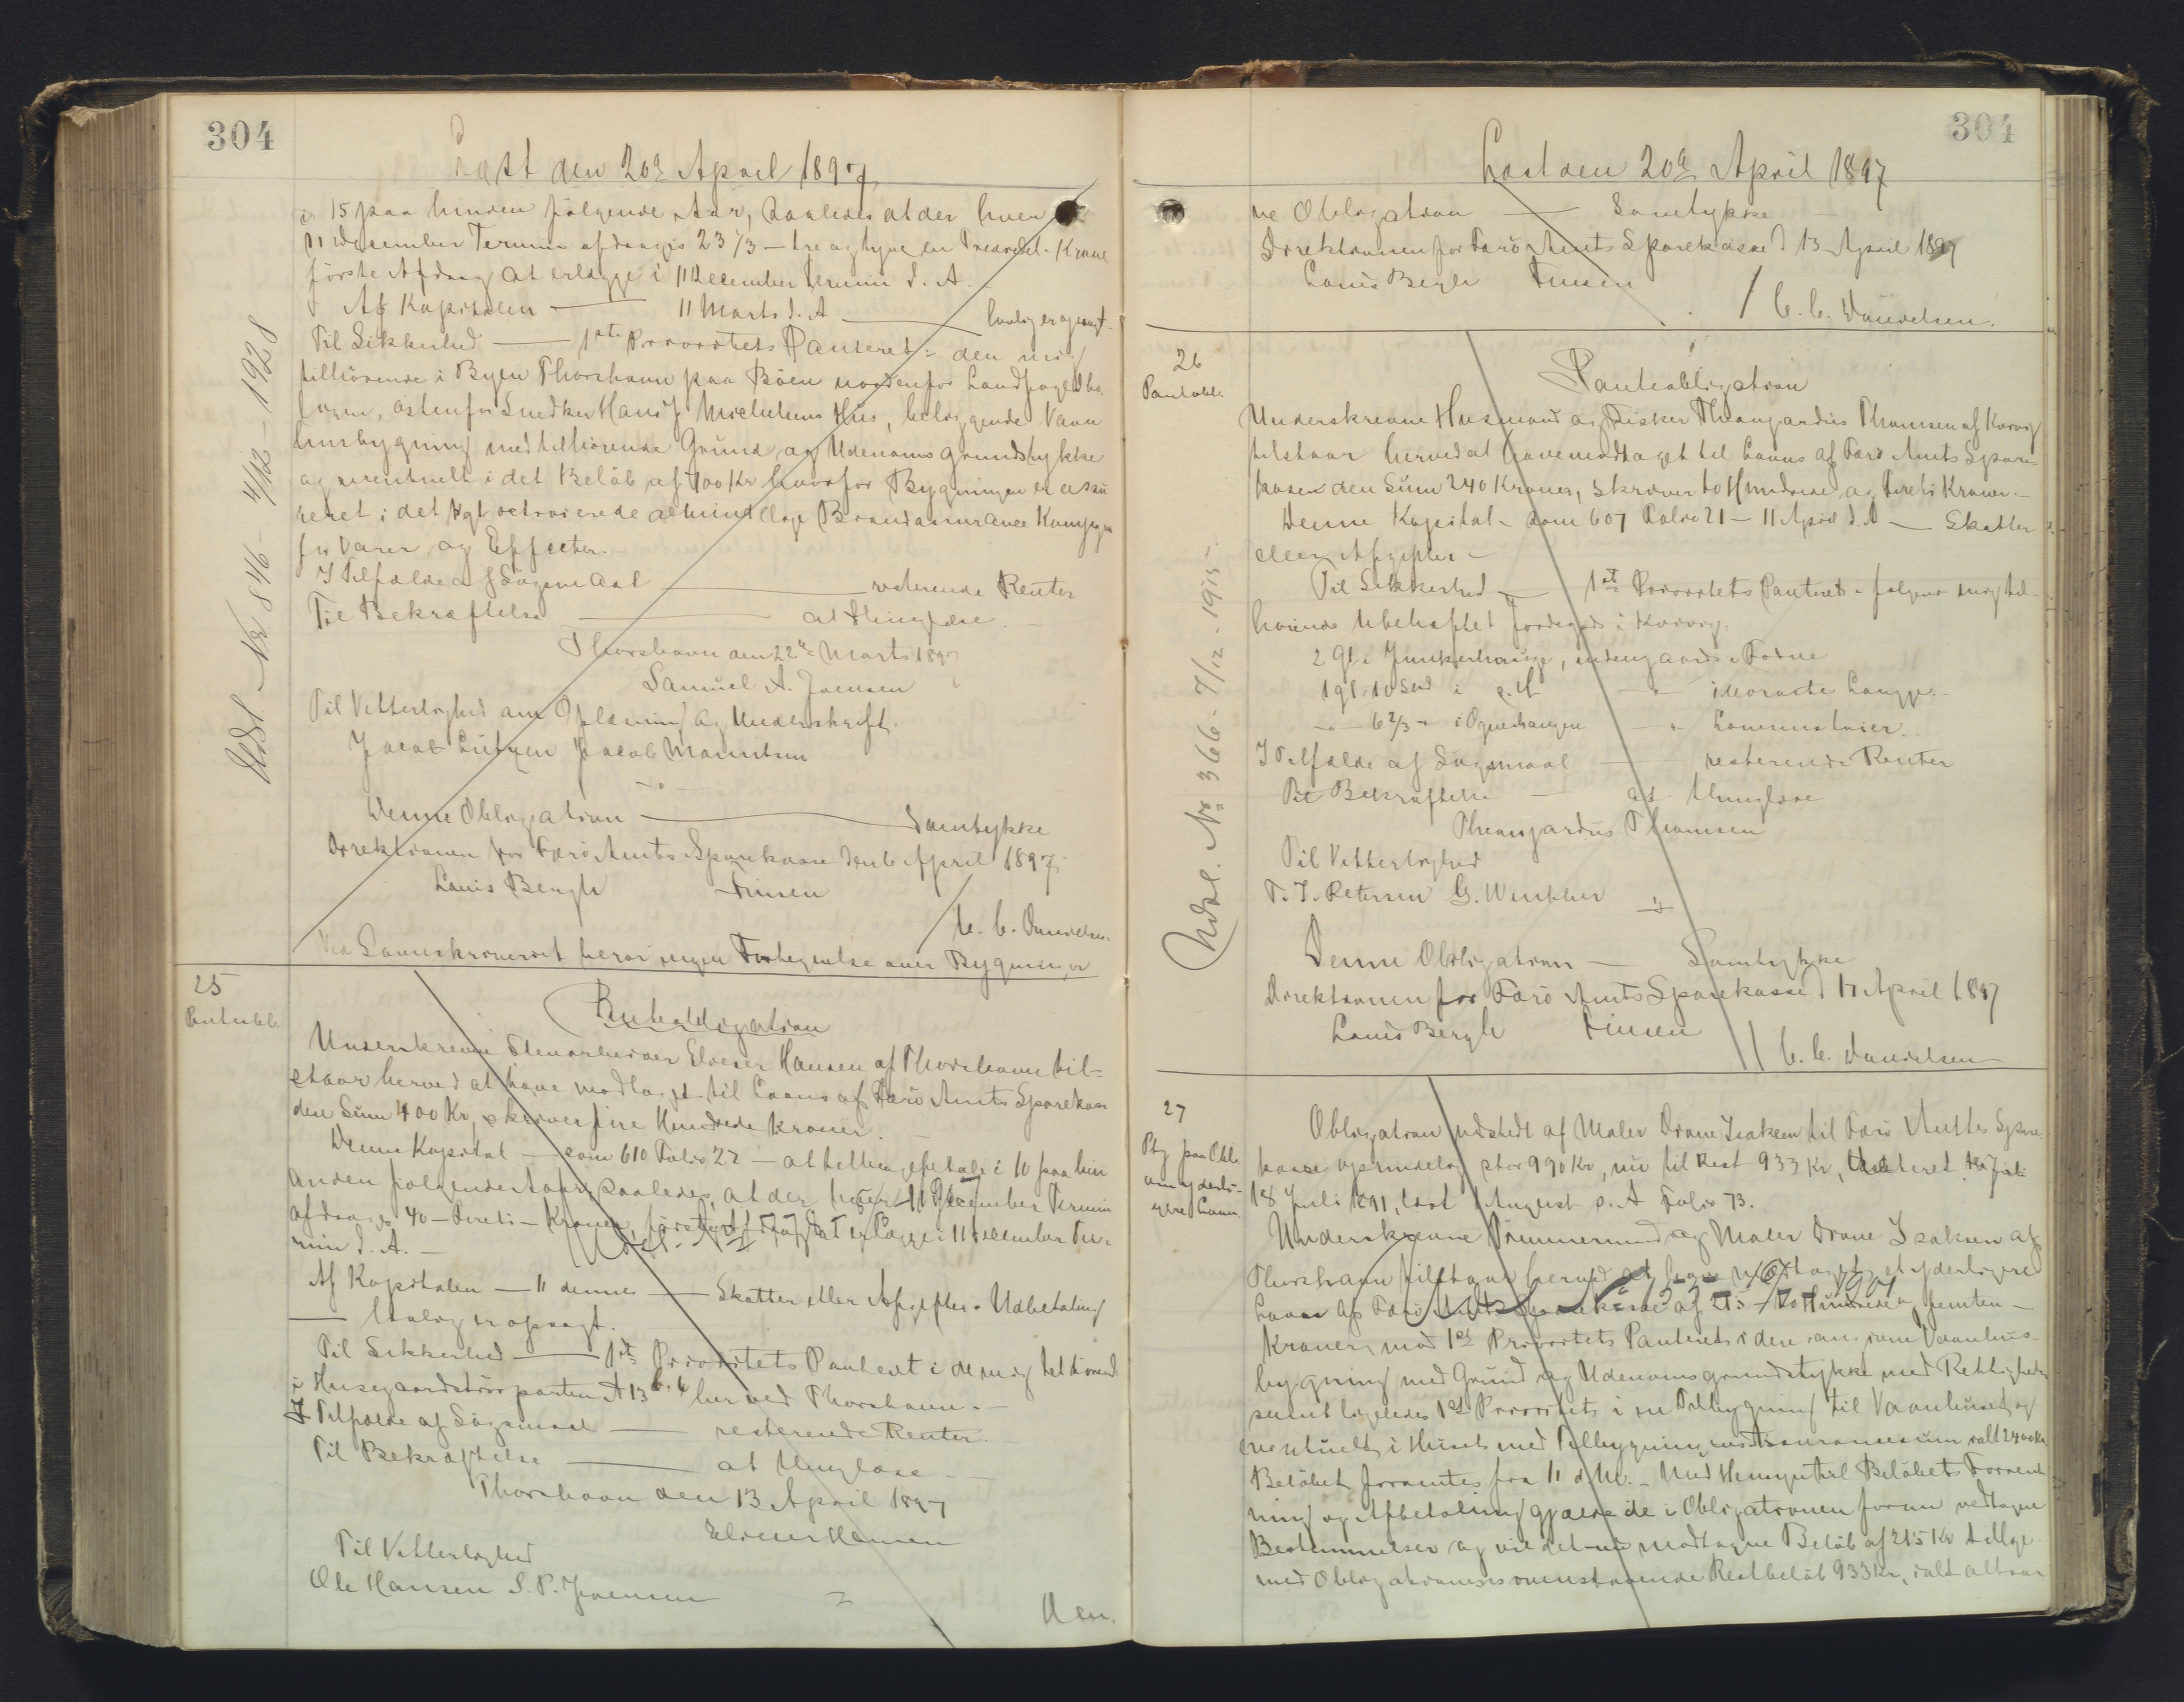 304
Læst den 20de April 1897
i 15 paa hinanden følgende Aar, saaledes at der hver
11 December Termin afdrages 23 1/3 — tre og tyve en Trediedel - Krone
første Afdrag at erlægge i 11 December Termin d. A.
Af Kapitalen — 11 Marts d. A — lovlig opsagt
Til Sikkerhed — 1ste Prioritets Panteret i den mig
tilhørende i Byen Thorshavn paa Bøen nordenfor Landfoged
østenfor Snedker Hans J. Michelsens Hus, beliggende Vaan
husbygning med tilhørende Grund og Udenoms grundstykke
og eventuelt i det Beløb af 700 Kr hvorfor Bygningen er assu
reret i det Kgl octroierede almindelige Brandassurance Kompagni
for Varer og Effecter.
I Tilfælde af Søgsmaal — resterende Renter
Til Bekræftelse — at thinglæse.
Thorshavn den 22de Marts 1897
Samuel A. Joensen
Til Vitterlighed om Oplæsning og Underskrift.
Jacob Lützen Jacob Mouritsen
Denne Obligation — Samtykke
Direktionen for Færø Amts Sparekasse den 6 April 1897
Louis Bergh Finsen
/ C. C. Danielsen.
Ved Sorenskriveriet beror ingen Fortegnelse over Bygninger
Udsl. Nr. 846 - 4/12 - 1928
25
Pantobl.
Pantobligation
Underskrevne Stenarbeider Elieser Hansen af Thorshavn til-
staar herved at have modtaget til Laans af Færø Amts Sparekasse
den Sum 400 Kr, skriver fire Hundrede Kroner.
Denne Kapital — som 610 Folio 22 — at tilbagebetale i 10 paa hin
anden følgende Aar, saaledes, at der hver 11 December Termin
afdrages 40 — fyreti — Kroner, første Afdrag at erlægge i 11 December Ter-
min d. A. —
Af Kapitalen — 11 dennes — Skatter eller Afgifter. Udbetaling
— lovlig er opsagt.
Til Sikkerhed — 1ste Prioritets Panteret i de mig tilhørende
i Husegaardstrøparten A 13 her ved Thorshavn. —
I Tilfælde af Søgsmaal — resterende Renter.
Til Bekræftelse — at thinglæse —
Thorshavn den 13 April 1897
Elieser Hansen
Til Vitterlighed
Ole Hansen S. P. Joensen
Den
304
Læst den 20de April 1897
ne Obligation — Samtykke.
Direktionen for Færø Amts Sparekasse d 13 April 1897
Louis Bergh Finsen
/ C. C. Danielsen.
26
Pantobl.
Pantobligation
Underskrevne Husmand og Fisker Thomsen af Kvivig
tilstaar herved at have modtaget til Laans af Færø Amts Spare-
kasse den Sum 240 Kroner, skriver to Hundrede og fireti Kroner. —
Denne Kapital — som 607 Folio 21 — 11 April d. A — Skatter
eller Afgifter —
Til Sikkerhed — 1ste Prioritets Panteret i følgende mig til-
hørende ubehæftet Jordegods i Kvivig.
2 Gl i Junkershauge, indengaards i Trøerne
1 Gl. 10 Skd i
— 6 2/3 —
I Tilfælde af Søgsmaal — resterende Renter
Til Bekræftelse — at thinglæse
Thomsen
Til Vitterlighed
T. J. Petersen G. Winther
Denne Obligation — Samtykke
Direktionen for Færø Amts Sparekasse d 17 April 1897
Louis Bergh Finsen
/ C. C. Danielsen
Udsl. Nr 366 - 7/12 - 1915
27
Ptg paa Obl.
om yderli-
gere Laan.
Obligation udstedt af Maler Drone Isaksen til Færø Amts Spare
kasse oprindelig stor 990 Kr, nu til Rest 933 Kr, dateret
18 Juli 1891, læst 1 August s. A Folio 73.
Underskrevne Tømmermand og Maler Drone Isaksen af
Thorshavn tilstaar herved at have modtaget et yderligere
Laan af Færø Amts Sparekasse af 215 — to Hundrede og femten —
Kroner, mod 1ste Prioritets Panteret i den Vaanhus-
bygning med Grund og Udenomsgrundstykke med Rettigheder
samt ligeledes 1ste Prioritets i en Tilbygning til Vaanhuset og
eventuelt i Husets med Tilbygningens Assurancesum ialt 2400 Kr
Beløbet forrentes fra 11 d. M. — Med Hensyn til Beløbets Forrent
ning og Afbetaling gjælde de i Obligationen forøvr vedtagne
Bestemmelser og vil det nu modtagne Beløb af 215 Kr tillige
med Obligationens ovenstaaende Restbeløb 933 Kr, ialt altsaa